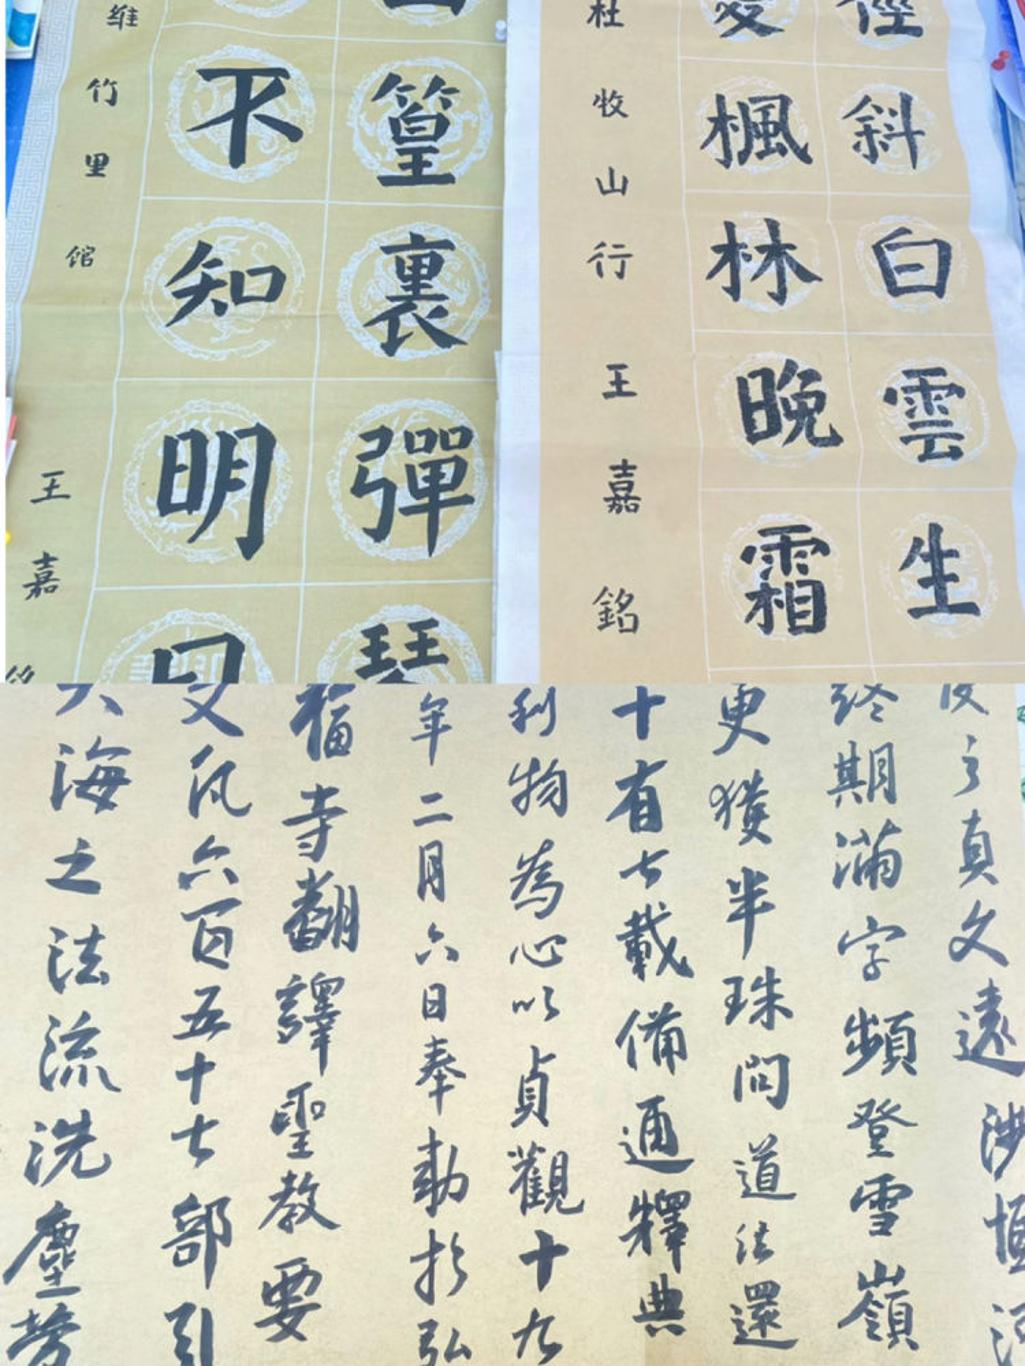 篁裏彈琴
不知明
維竹里馆
王嘉
徑斜白雲生
愛楓林晚霜
杜牧山行
王嘉銘
之真文遠涉恒河
終期滿字頻登雪嶺
更獲半珠問道法還
十有七載備通釋典
利物為心以貞觀十九
年二月六日奉勅於弘
福寺翻譯聖教要
文凡六百五十七部引
大海之法流洗塵勞